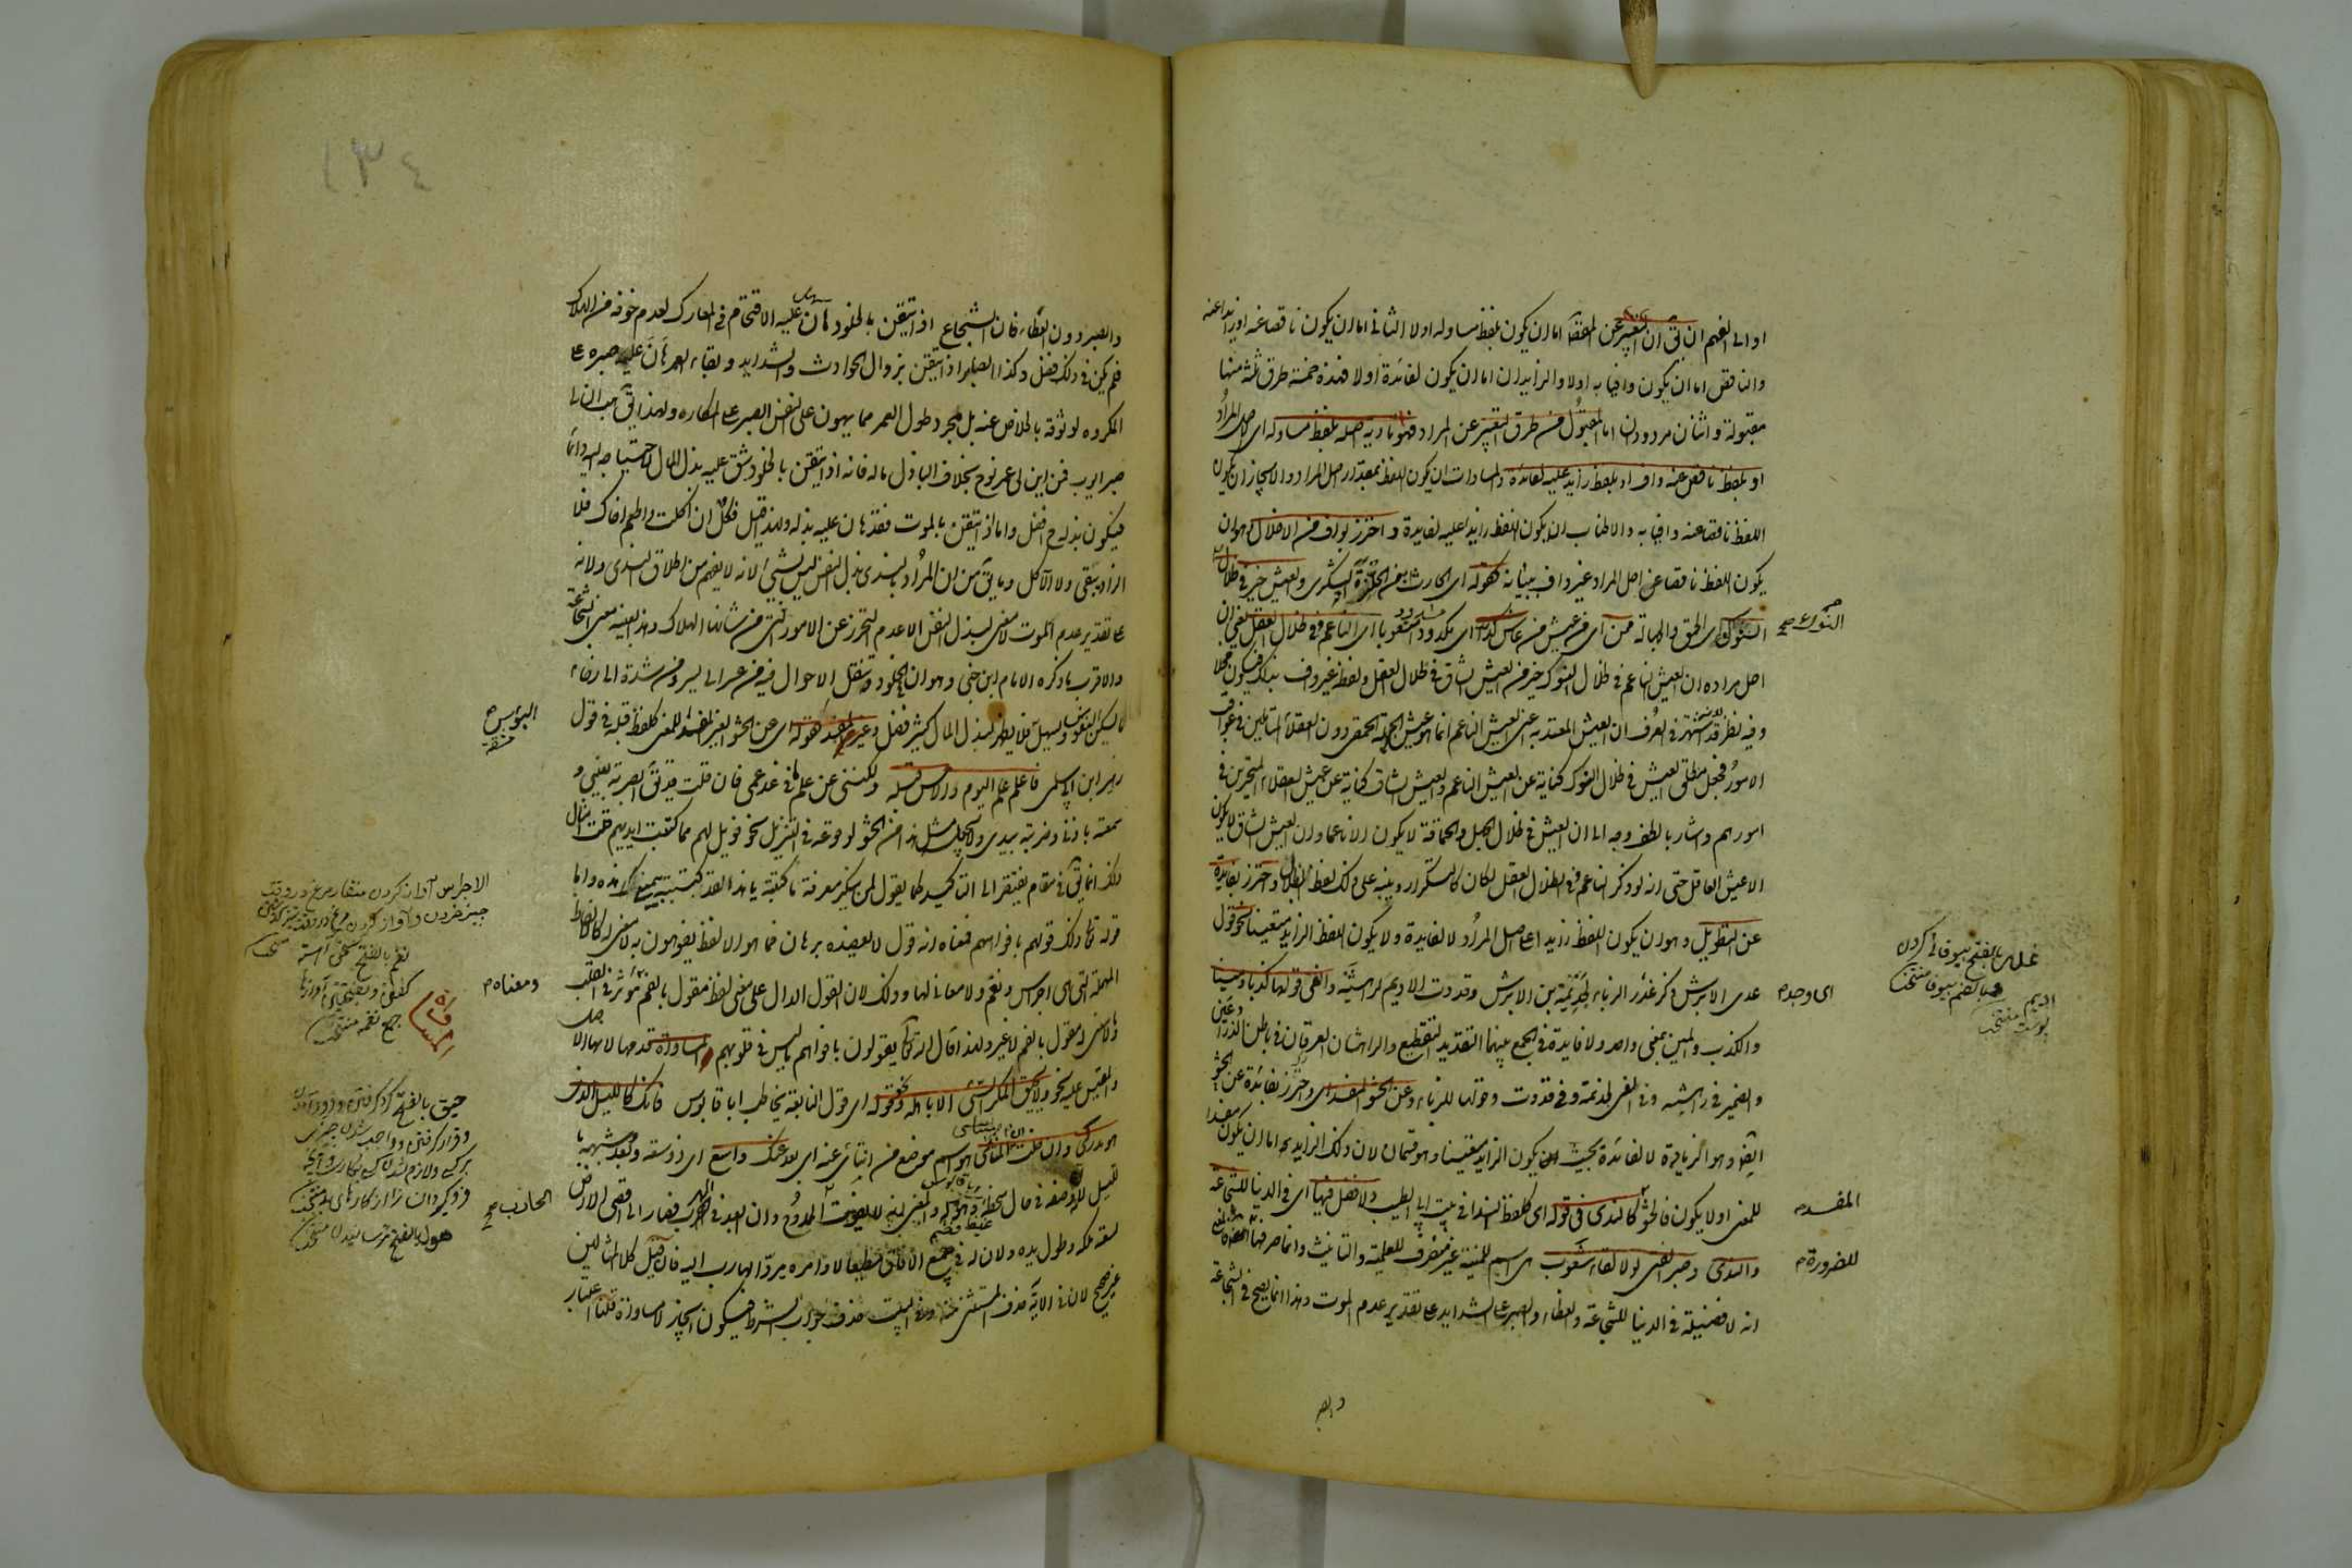 او الى الفهم ان يق ان التعبير عن المقصد اما ان يكون بلفظ مساو له اولا الثانى اما ان يكون ناقصا عنه او زايدا عنه
والناقص اما ان يكون وافيا به اولا والزايد ان اما ان يكون لفائدة اولا فهذه خمسة طرق ثلثة منها
مقبولة واثنان مردودان اما المقبول من طرق التعبير عن المراد فهو تاديه اصله بلفظ مساو له اى لاصل المراد
او بلفظ ناقص عنه واف او بلفظ زايد عليه لفائدة والمساوات ان يكون اللفظ بمقدار اصل المراد والايجاز ان يكون
اللفظ ناقصا عنه وافيا به والاطناب ان يكون اللفظ زايدا عليه لفايدة و احترز بواف من الاخلال وهو ان
يكون اللفظ ناقصا عن اصل المراد غير واف ببيانه كقوله اى الحارث بن حلزة اليشكرى والعيش خير فى ظلال
النوك اى الحمق والجهالة ممن اى من عيش من عاش كدا اى مكدودا متعوبا اى الناعم فى ظلال العقل يعنى ان
اصل مراده ان العيش الناعم فى ظلال النوك خير من العيش الشاق فى ظلال العقل ولفظ غير واف بذلك فيكون مخلا
وفيه نظر قد اشتهر فى العرف ان العيش المعتد به اعنى العيش الناعم انما هو عيش الجهلة الحمقى دون العقلاء المتأملين فى عواقب
الامور فجعل مطلق العيش فى ظلال النوك كناية عن العيش الناعم والعيش الشاق كناية عن عيش العقلاء المتحيرين فى
امورهم واشار بالطف وجه الى ان العيش فى ظلال الجهل والحماقة لا يكون الا ناعما وان العيش الشاق لا يكون
الا عيش العاقل حتى انه لو ذكر الناعم فى ظلال العقل لكان كالتكرار وينبه على ذلك لفظ الظلال واحترز بفايدة
عن التطويل وهو ان يكون اللفظ زايدا على اصل المراد لا لفايدة ولا يكون اللفظ الزايد متعينا نحو قول
عدى الابرش ذكر غدر الزباء لجذيمة بن الابرش وقددت الاديم لراهشيه والفى قولها كذبا ومينا
والكذب والمين بمعنى واحد ولا فايدة فى الجمع بينهما التقديد التقطيع والراهشان العرقان فى باطن الذراعين
والضمير فى راهشيه وفى الفى لجذيمة وفى قددت وقولها للزباء وعن الحشو المفسد اى واحترز بفائدة عن الحشو
ايضا وهو الزيادة لا لفائدة بحيث يكون الزايد متعينا وهو قسمان لان ذلك الزايد اما ان يكون مفسدا
للمعنى اولا يكون فالحشو كالندى فى قوله اى كلفظ الندا فى بيت ابى الطيب ولا فضل فيها اى فى الدنيا للشجاعة
والندى وصبر الفتى لولا لقاء شعوب هى اسم للمنية غير منصرف للعلمية والتانيث وانما صرفها
انه لا فضيلة فى الدنيا للشجاعة والعطاء والصبر على الشدايد على تقدير عدم الموت وهذا انما يصح فى الشجاعة
النوك صح
اى وجد م
المفسد م
للضرورة م
غدر بالفتح بيوفائى كردن
اديم پوست منتخب
والصبر
١٣٤
والصبر دون العطاء فان الشجاع اذا تيقن بالخلود هان عليه الاقتحام فى المعارك لعدم خوفه من الهلاك
فلم يكن فى ذلك فضل وكذا الصابر اذا تيقن بزوال الحوادث والشدايد وبقاء العمر هان عليه صبره على
المكروه لوثوقه بالخلاص عنه بل مجرد طول العمر مما يهون على النفس الصبر على المكاره ولهذا يق هب ان لى
صبر ايوب فمن اين لى عمر نوح بخلاف الباذل ماله فانه اذا تيقن بالخلود شق عليه بذل المال لاحتياجه اليه دائما
فيكون بذله ح افضل واما اذا تيقن بالموت فقد هان عليه بذله ولهذا قيل فكل ان اكلت واطعم اخاك فلا
الزاد يبقى ولا الآكل وما يق من ان المراد بالندى بذل النفس ليس بشىء لانه لا يفهم من اطلاق الندى ولانه
على تقدير عدم الموت لا معنى لبذل النفس الا عدم التحرز عن الامور التى من شانها الهلاك وهذا بعينه معنى الشجاعة
والاقرب ما ذكره الامام ابن جنى وهو ان فى الخلود وتنقل الاحوال فيه من عسر الى يسر ومن شدة الى رخاء
ما يسكن النفوس ويسهل فلا يظهر لبذل المال كثير فضل وغير المفسد كقوله اى عن الحشو الغير المفسد للمعنى كلفظ قبله فى قول
زهير ابن ابى سلمى فاعلم علم اليوم والامس قبله ولكننى عن علم ما فى غد عمى فان قلت قد يق ابصرته بعينى و
سمعته باذنى وضربته بيدى ولا يجعل مثل هذا من الحشو لوقوعه فى التنزيل نحو فويل لهم مما كتبت ايديهم قلت امثال
ذلك انما يق فى مقام يفتقر الى التاكيد كما يقول لمن ينكر معرفة ما كتبته يا هذا لقد كتبته بيمينك هذه واما
قوله تع ذلك قولهم بافواههم فمعناه انه قول لا يعضده برهان فما هو الا لفظ يفوهون به لا معنى له كالالفاظ
المهملة التى هى اجراس ونغم ولا معانى لها وذلك لان القول الدال على معنى لفظه مقول بالفم مؤثر فى القلب
ولا معنى له مقول بالفم لا غير ولهذا قال الله تع يقولون بافواههم ما ليس فى قلوبهم والمساواة قدمها لانها الاصل
والمقيس عليه نحو ولا يحيق المكر السيئ الا باهله وقوله اى قول النابغة يخاطب ابا قابوس فانك كالليل الذى
هو مدركى وان خلت ان المنتأى هو اسم موضع من انتأى عنه اى بعد عنك واسع اى ذو سعة وبعد شبهه با
لليل لانه وصفه فى حال سخطه وهوله والمعنى انه لا يفوت الممدوح وان ابعد فى الهرب فصار الى اقصى الارض
لسعة ملكه وطول يده ولان له فى جميع الآفاق مطيعا لاوامره يرد الهارب اليه فان قيل كلا المثالين
غير صحيح لان فى الآية حذف المستثنى منه وفى البيت حذف جواب الشرط فيكون ايجازا لا مساواة قلنا اعتبار
البؤس
ومعناه م
المساواة
الهارب صح
الاجراس آواز كردن منقار مرغ در وقت
نغم بالفتح سخن آهسته منتخب
جمع نغمه منتخب
حيق بالفتح
هول بالفتح ترسانيدن منتخب